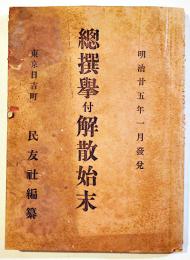 明治廿五年一月發兌
總撰擧付解散始末
東京日吉町
民友社編纂